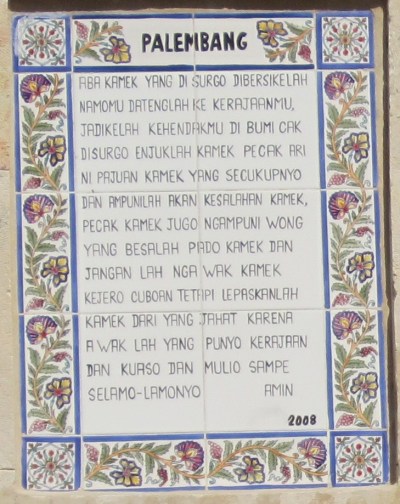 PALEMBANG
ABA KAMEK YANG DI SURGO DIBERSIKELAH
NAMOMU DATENGLAH KE KERAJAANMU,
JADIKELAH KEHENDAKMU DI BUMI CAK
DISURGO ENJUKLAH KAMEK PECAK ARI
NI PAJUAN KAMEK YANG SECUKUPNYO
DAN AMPUNILAH AKAN KESALAHAN KAMEK,
PECAK KAMEK JUGO NGAMPUNI WONG
YANG BESALAH PADO KAMEK DAN
JANGAN LAH NGA WAK KAMEK
KEJERO CUBOAN TETAPI LEPASKANLAH
KAMEK DARI YANG JAHAT KARENA
A WAK LAH YANG PUNYO KERAJAAN
DAN KUASO DAN MULIO SAMPE
SELAMO-LAMONYO AMIN
2008